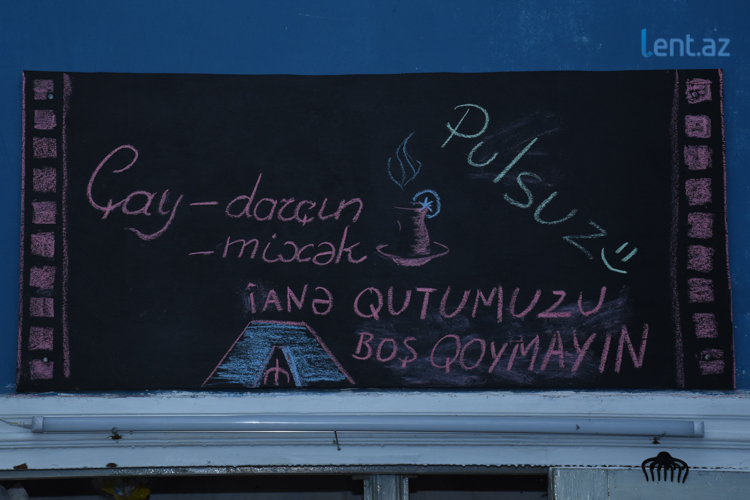 Lent.az
Pulsuz
Çay - darçın
- mixək
İANƏ QUTUMUZU
BOŞ QOYMAYIN